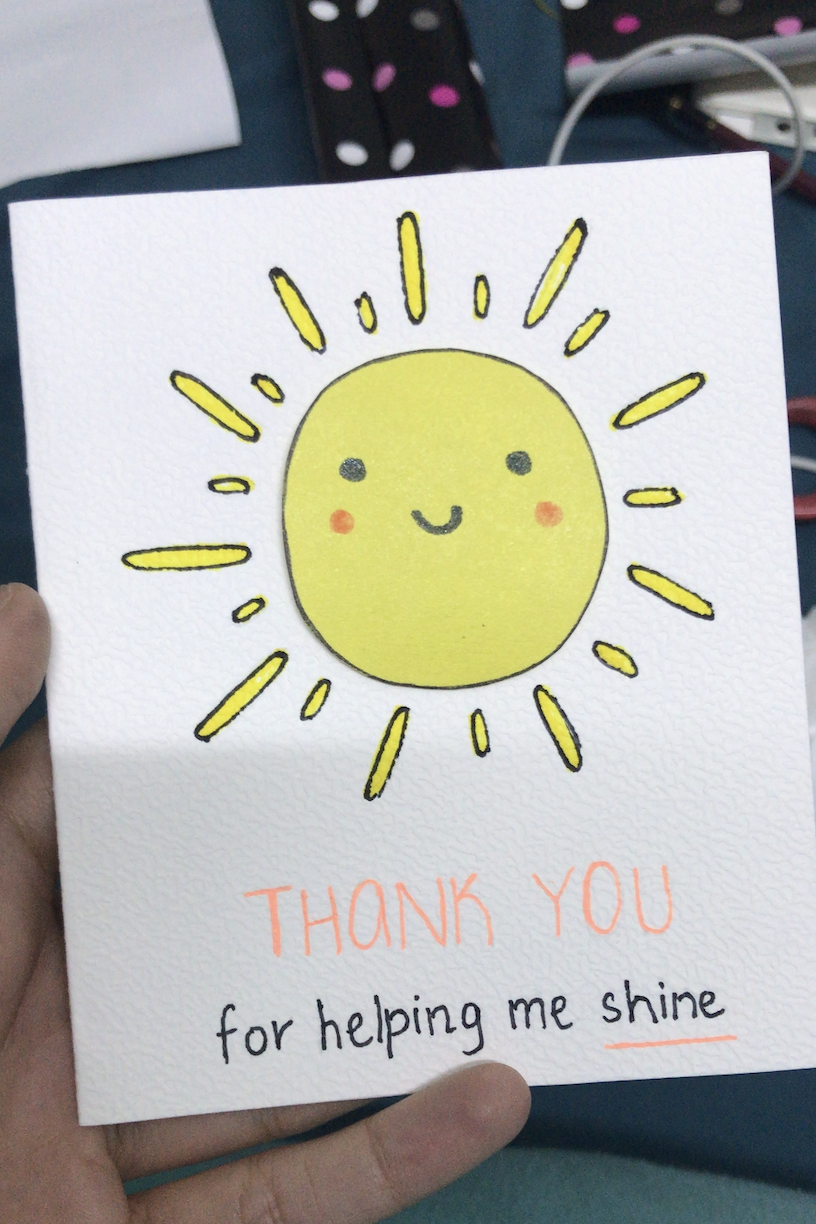 THANK YOU
for helping me shine